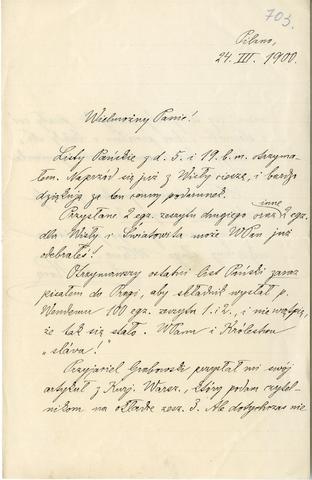 703.
Pilzno,
24. III. 1900.
Wielmożny Panie!
Listy Pańskie z d. 5. i 19. b. m. otrzyma-
łem. Naprzód się już z Wisły cieszę, i bardzo
dziękuję za ten cenny podarunek.
Przysłane 2 egz. zeszytu drugiego oraz inne egz.
dla Wisły i Światowita może WPan już
odebrał!
Otrzymawszy ostatni list Pański zaraz
pisałem do Pragi, aby składnik wysłał p.
Wendemu 100 egz. zeszytu 1. i 2., i nie wątpię,
że tak się stało. WPanu i Królestwu
„sláva!"
Przyjaciel Grabowski przysłał mi swój
artykuł z Kurj. Warsz., który podam czytel-
nikom na okładce zesz. 3. Ale dotychczas nie